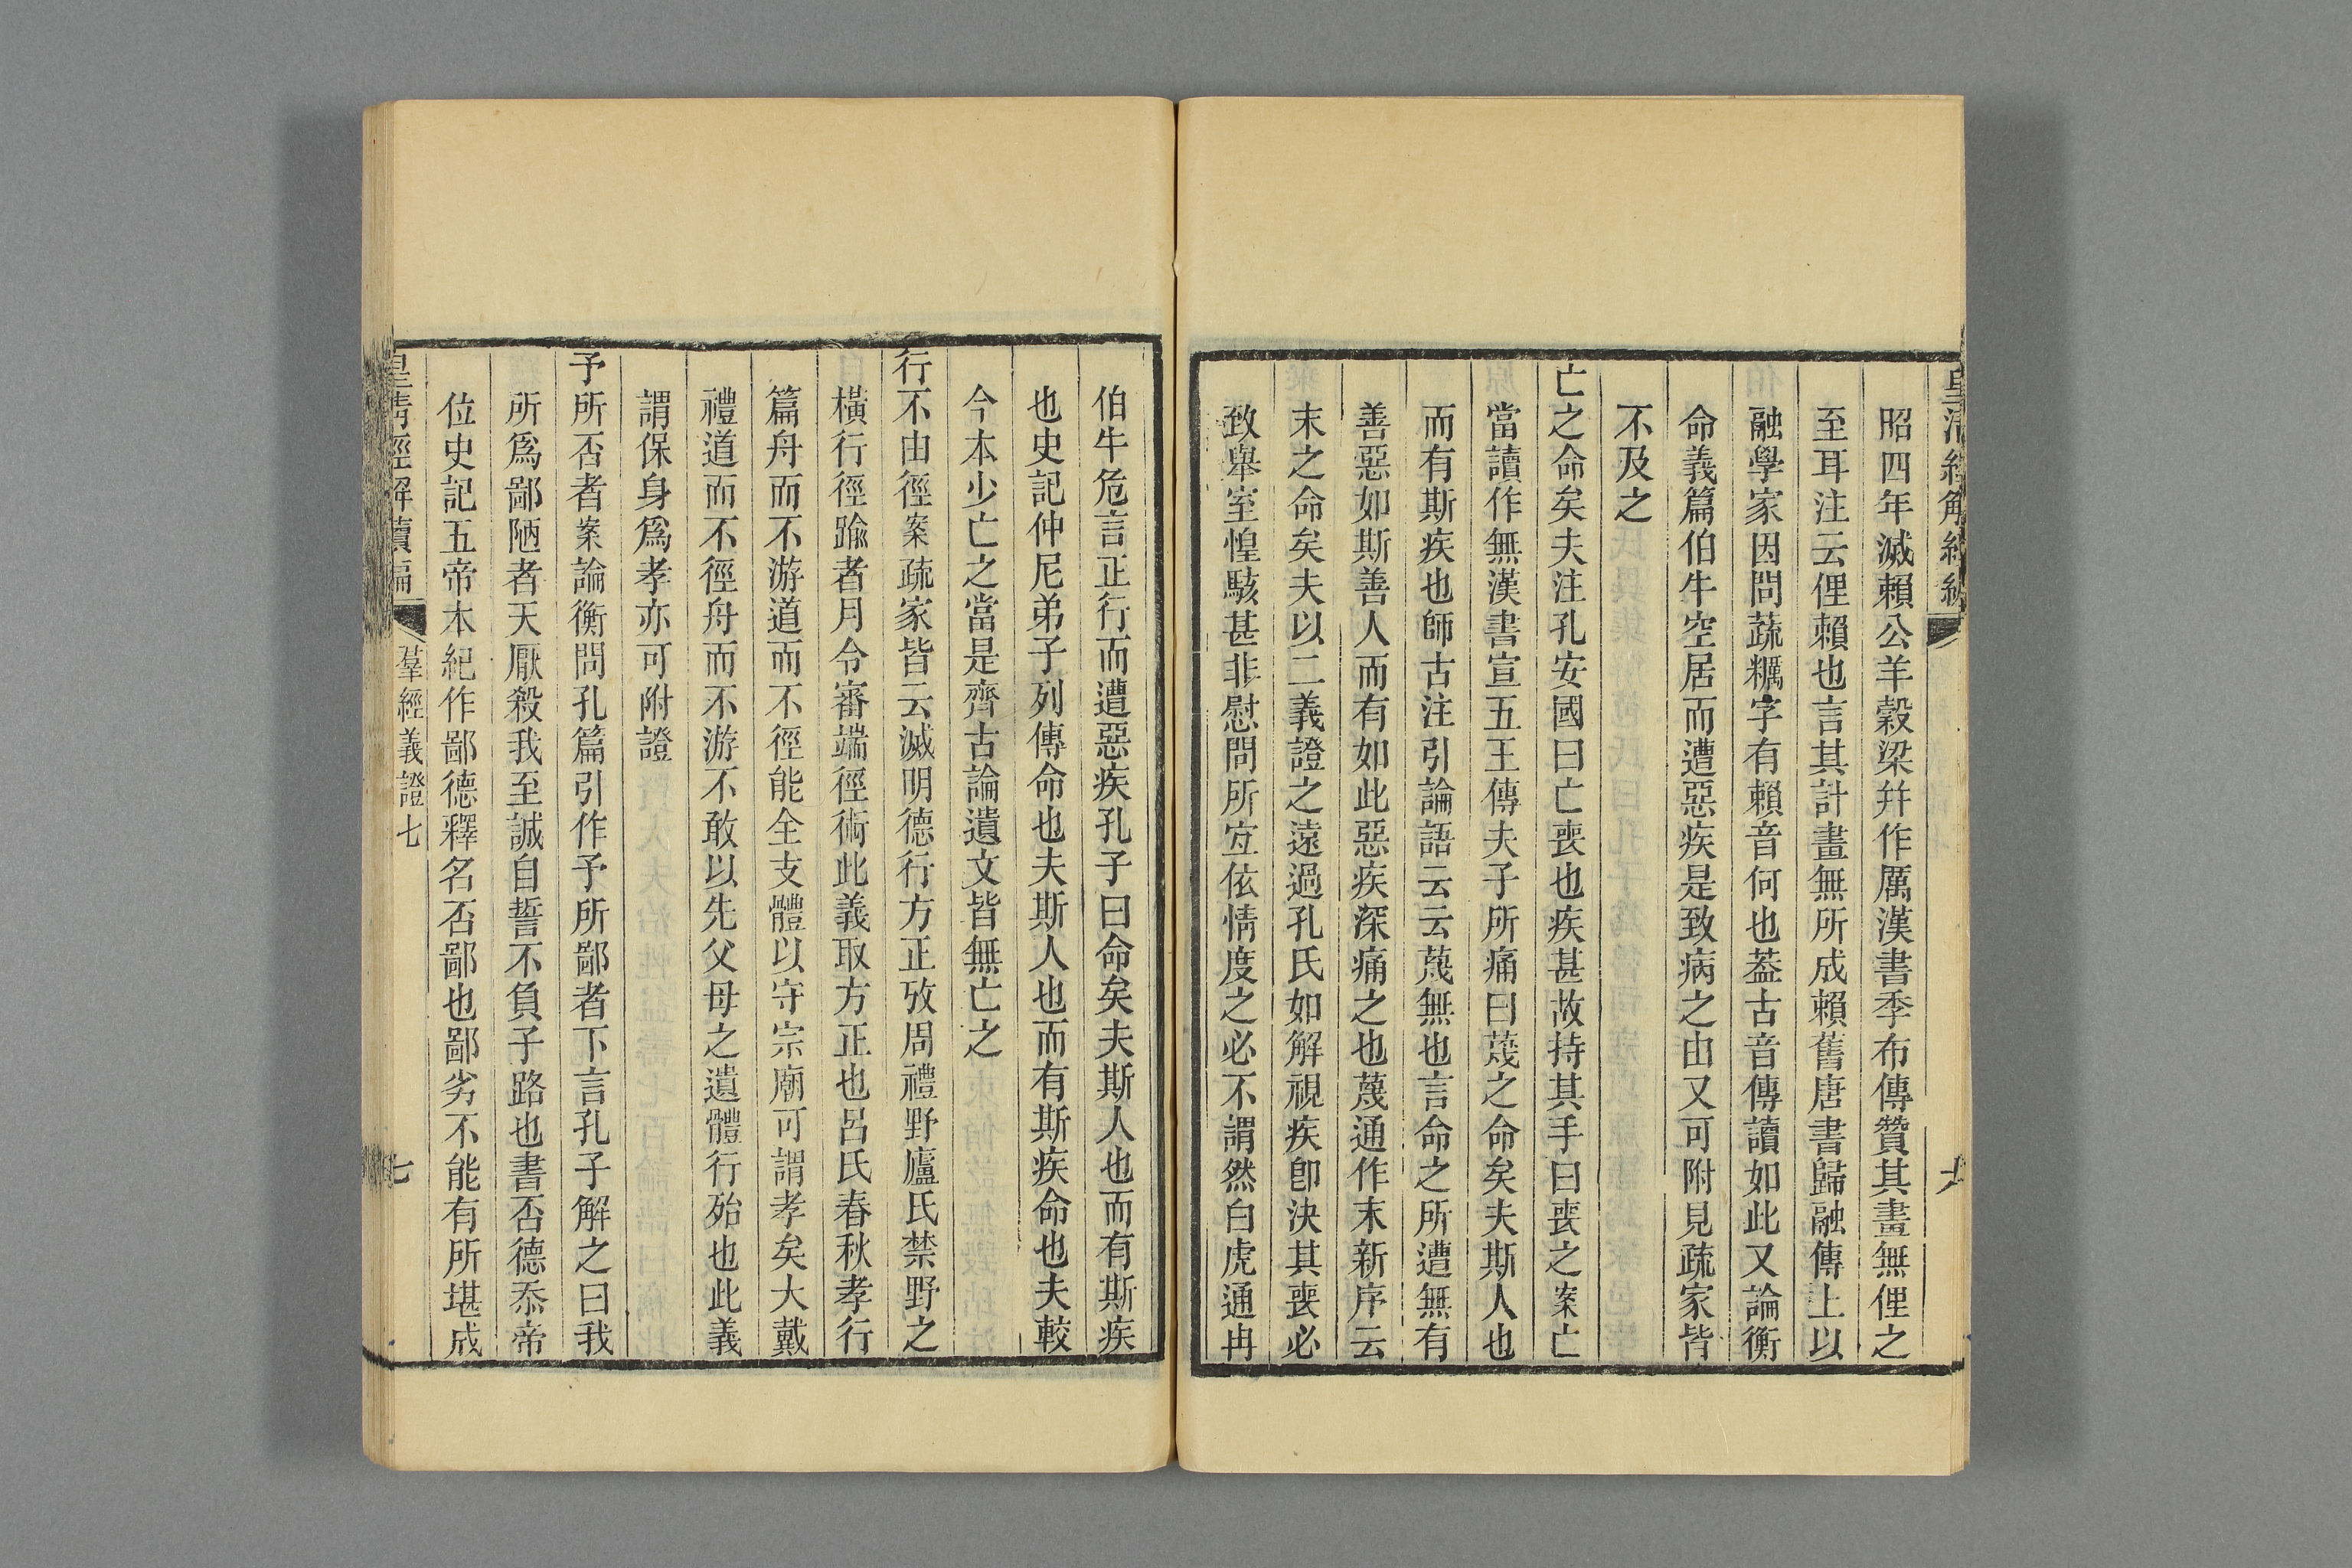 昭四年滅賴公羊穀梁幷作厲漢書季布傳贊其畫無俚之
至耳注云俚賴也言其計畫無所成賴舊唐書歸融傳上以
融學家因問蔬糲字有賴音何也葢古音傳讀如此又論衡
命義篇伯牛空居而遭惡疾是致病之由又可附見疏家皆
不及之
亡之命矣夫注孔安國曰亡喪也疾甚故持其手曰喪之案亡
當讀作無漢書宣五王傳夫子所痛曰蔑之命矣夫斯人也
而有斯疾也師古注引論語云云蔑無也言命之所遭無有
善惡如斯善人而有如此惡疾深痛之也蔑通作末新序云
末之命矣夫以二義證之遠過孔氏如解視疾卽決其喪必
致舉室惶駭甚非慰問所宐依情度之必不謂然白虎通冉
伯牛危言正行而遭惡疾孔子曰命矣夫斯人也而有斯疾
也史記仲尼弟子列傳命也夫斯人也而有斯疾命也夫較
今本少亡之當是齊古論遺文皆無亡之
行不由徑案疏家皆云滅明德行方正攷周禮野廬氏禁野之
橫行徑踰者月令審端徑術此義取方正也呂氏春秋孝行
篇舟而不游道而不徑能全支體以守宗廟可謂孝矣大戴
禮道而不徑舟而不游不敢以先父母之遺體行殆也此義
謂保身爲孝亦可附證
予所否者案論衡問孔篇引作予所鄙者下言孔子解之曰我
所爲鄙陋者天厭殺我至誠自誓不負子路也書否德忝帝
位史記五帝本紀作鄙德釋名否鄙也鄙劣不能有所堪成
皇清經解續編
羣經義證七
七